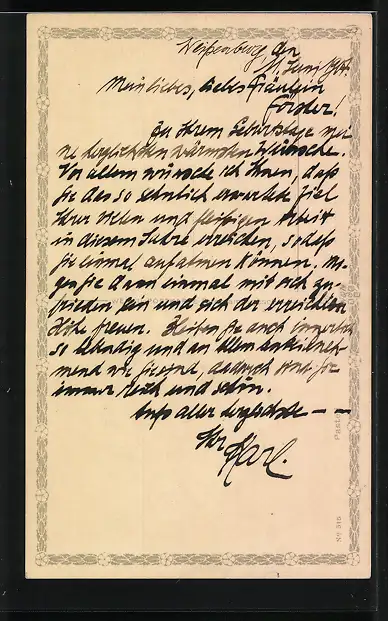 Weißenberg, den
11. Juni
Mein liebes, liebes Fräulein
Förster!
Zu Ihrem Geburtstage mei-
ne herzlichsten wärmsten Wünsche.
Vor allem wünsche ich Ihnen, daß
Sie das so sehnlich erwartete Ziel
Ihrer vielen und fleißigen Arbeit
in diesem Jahre erreichen, sodaß
Sie einmal aufatmen können. Mö-
gen Sie dann einmal mit sich zu-
frieden sein und sich der erreichten
Höhe freuen. Bleiben Sie auch
so lebendig und an allem anteilneh-
mend wie Sie sind, dadurch sind Sie
immer reich und schön.
Aufs aller herzlichste — —
Ihr Karl.
Nº 315